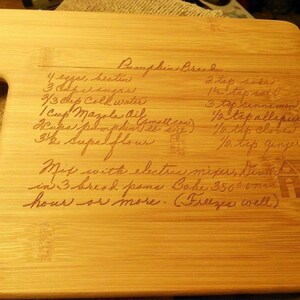 Pumpkin Bread
4 eggs beaten
3 cups sugar
2/3 cup cold water
1 cup Mazola Oil
2 cups pumpkin
3 1/2 c. flour
2 tsp soda
1 1/2 tsp
3 tsp cinnamon
1/2 tsp
1/2 tsp cloves
1/2 tsp ginger
Mix with electric mixer. Divide
in 3 bread pans Bake 350° one
hour or more. (Freezes well)